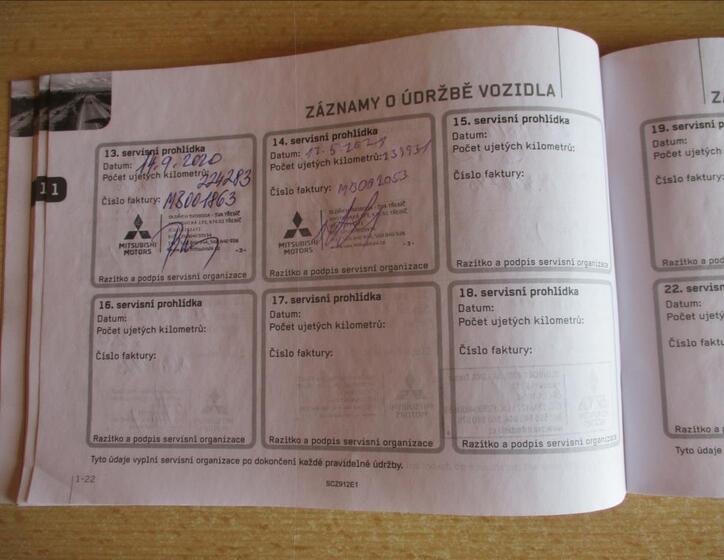 ZÁZNAMY O ÚDRŽBĚ VOZIDLA
11
13. servisní prohlídka
Datum: 14.9.2020
Počet ujetých kilometrů:
224283
Číslo faktury: MB001863
MITSUBISHI
MOTORS
OLDŘICH SVOBODA - TVA TŘEBÍČ
-3-
Razítko a podpis servisní organizace
14. servisní prohlídka
Datum: 17.5.2021
Počet ujetých kilometrů:
Číslo faktury: MB002053
MITSUBISHI
MOTORS
OLDŘICH SVOBODA - TVA TŘEBÍČ
-3-
Razítko a podpis servisní organizace
15. servisní prohlídka
Datum:
Počet ujetých kilometrů:
Číslo faktury:
Razítko a podpis servisní organizace
16. servisní prohlídka
Datum:
Počet ujetých kilometrů:
Číslo faktury:
Razítko a podpis servisní organizace
17. servisní prohlídka
Datum:
Počet ujetých kilometrů:
Číslo faktury:
Razítko a podpis servisní organizace
18. servisní prohlídka
Datum:
Počet ujetých kilometrů:
Číslo faktury:
Razítko a podpis servisní organizace
Tyto údaje vyplní servisní organizace po dokončení každé pravidelné údržby.
1-22
SCZ912E1
19. servisní
Datum:
Počet ujetý
Číslo faktur
Razítko a p
22. servisn
Datum:
Počet ujetý
Číslo faktu
Razítko a
Tyto údaje